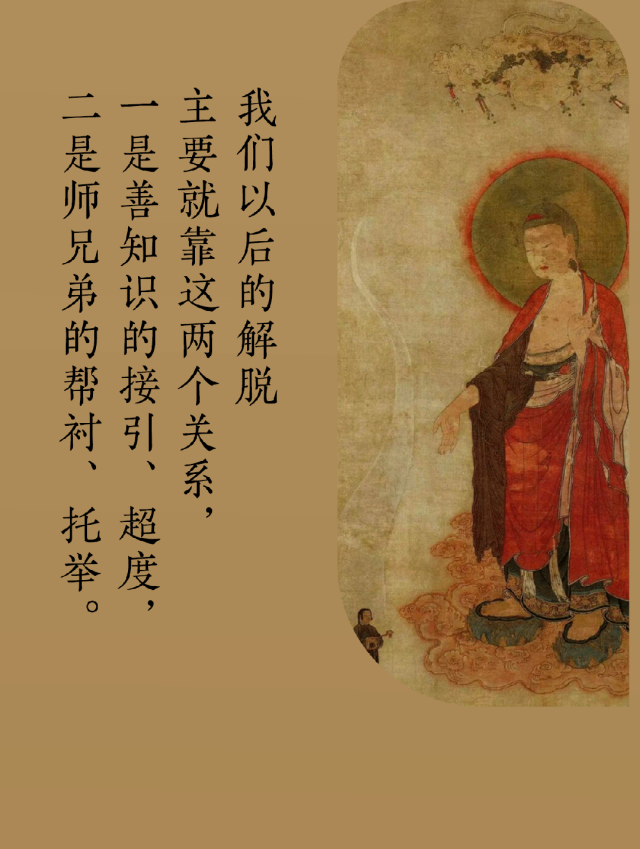 我们以后的解脱
主要就靠这两个关系，
一是善知识的接引、超度，
二是师兄弟的帮衬、托举。